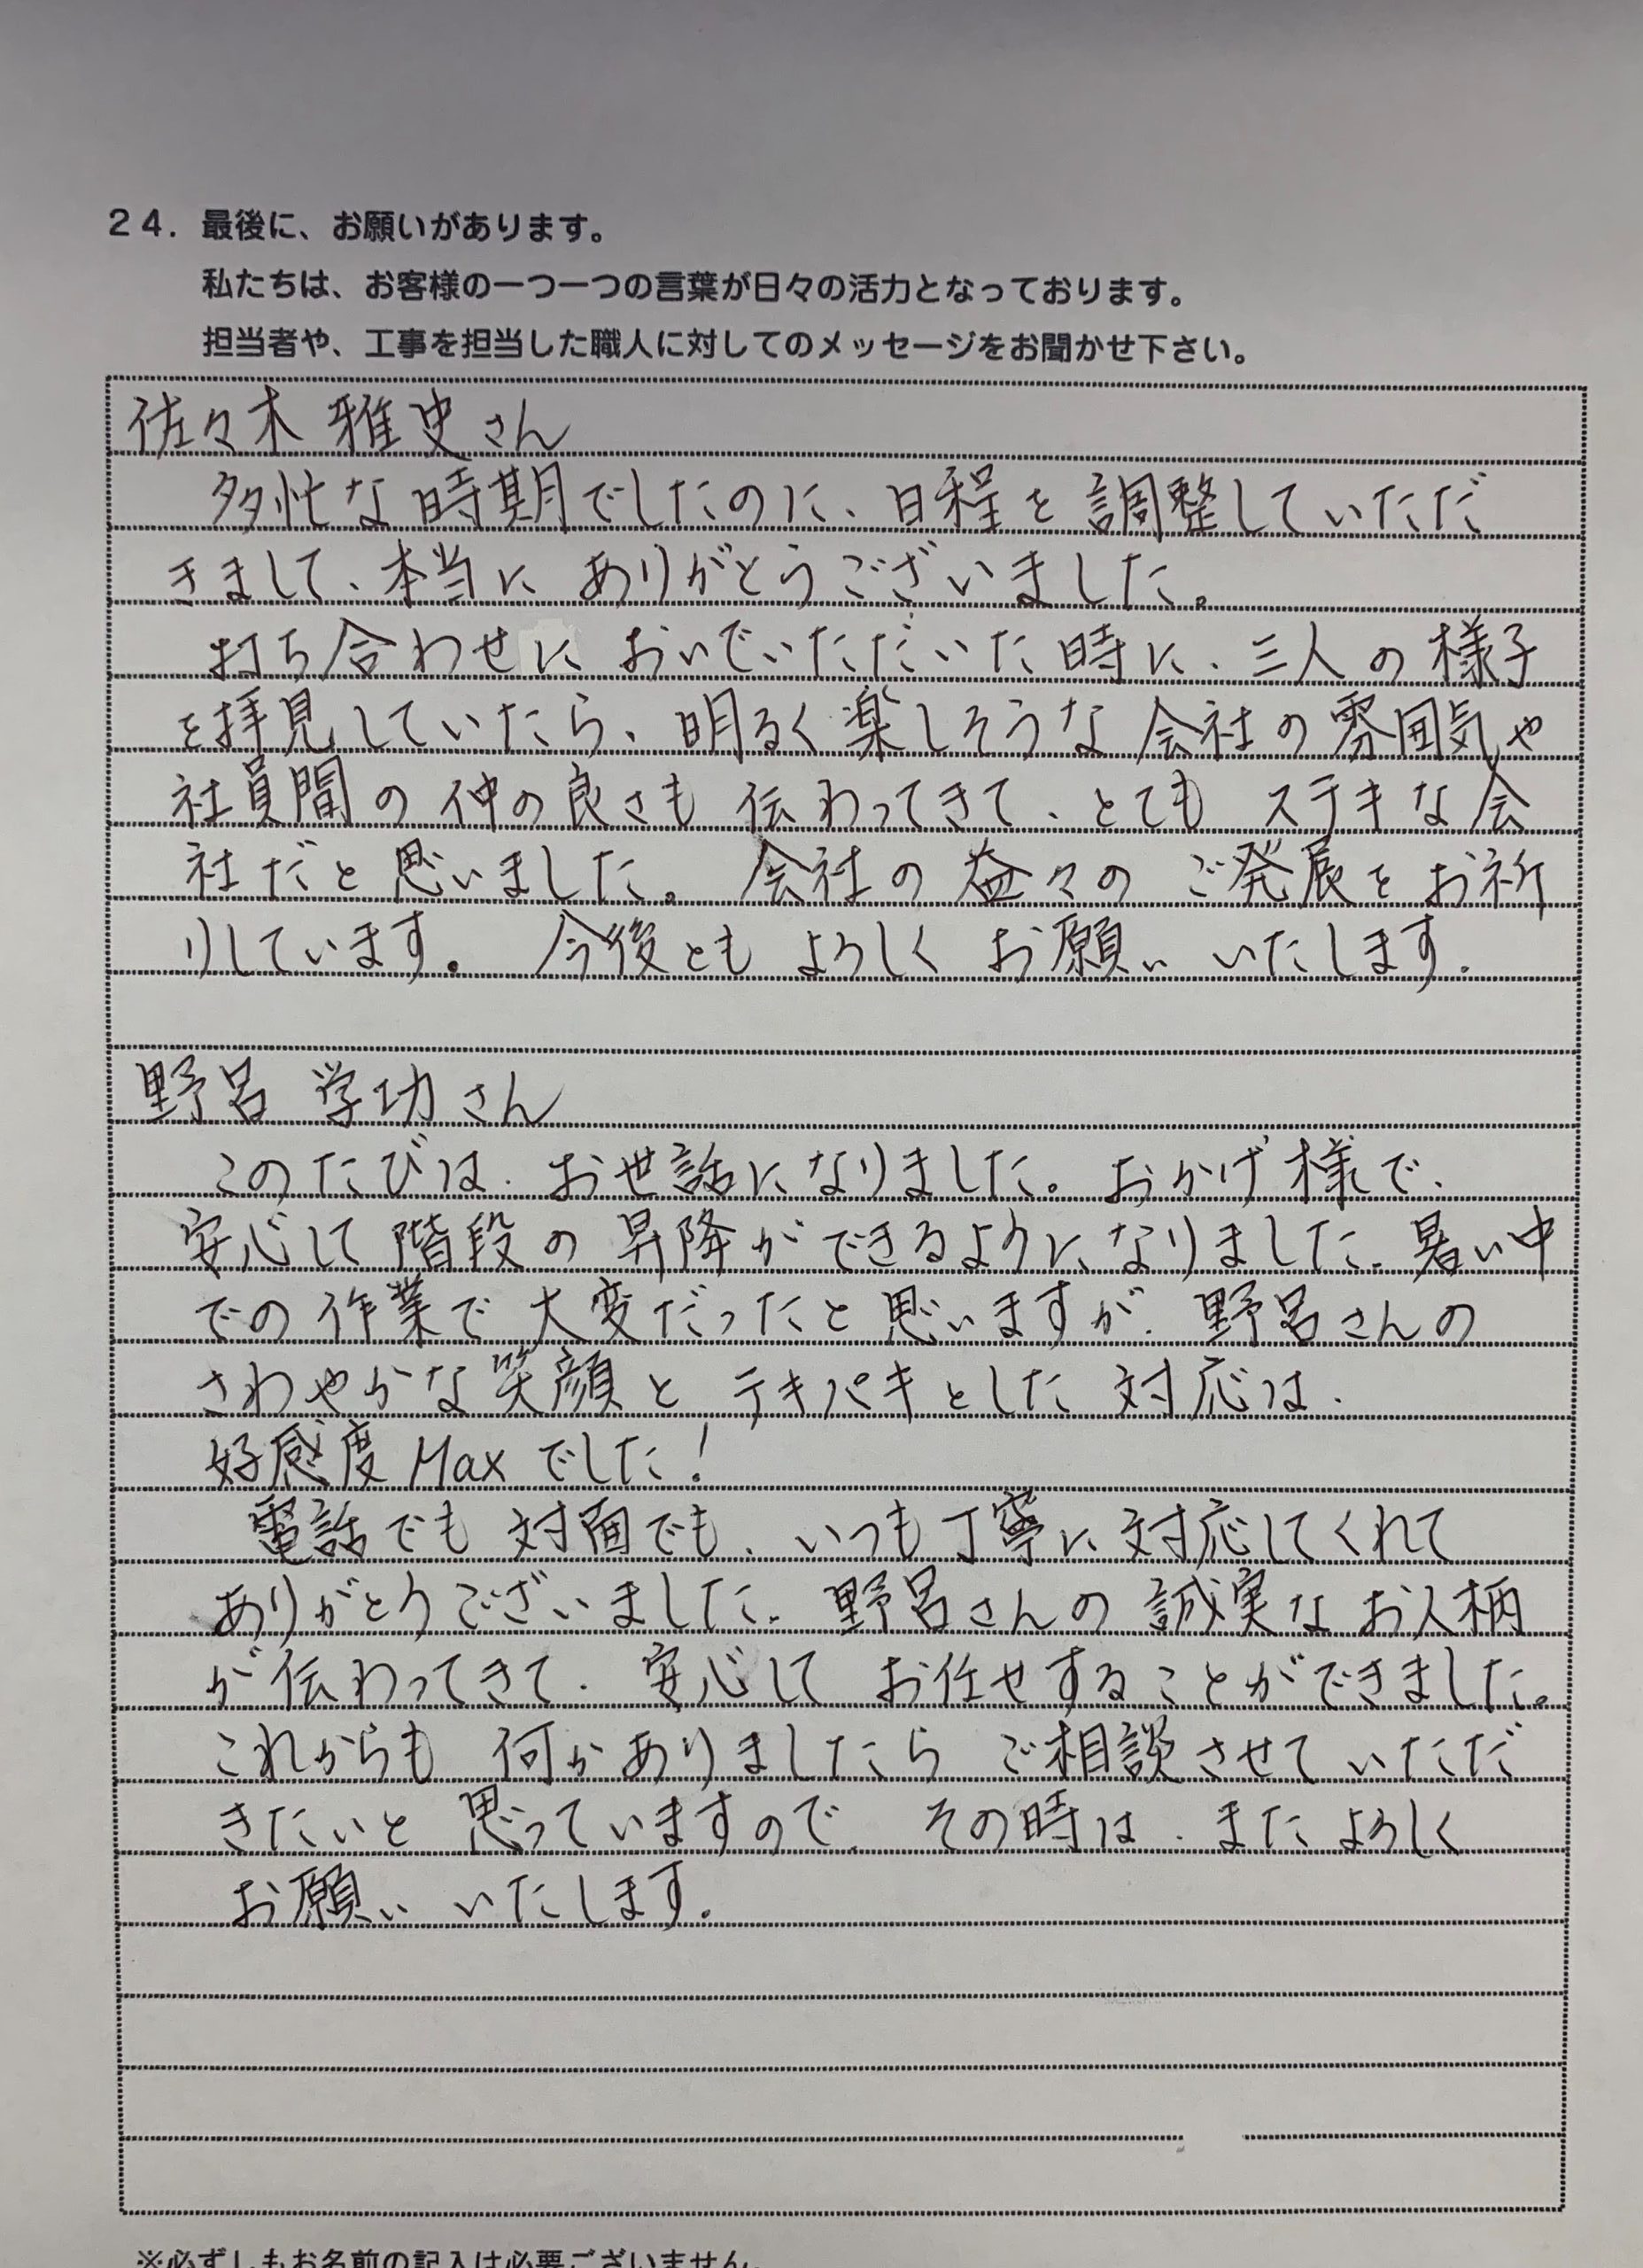 24. 最後に、お願いがあります。
私たちは、お客様の一つ一つの言葉が日々の活力となっております。
担当者や、工事を担当した職人に対してのメッセージをお聞かせ下さい。
佐々木 雅史さん
多忙な時期でしたのに、日程を調整していただ
きまして、本当に ありがとうございました。
打ち合わせに おいでいただいた時に、三人の様子
を拝見していたら、明るく楽しそうな会社の雰囲気や
社員間の仲の良さも 伝わってきて、とても ステキな会
社だと思いました。 会社の益々の ご発展をお祈
りしています。 今後とも よろしく お願い いたします.
野呂 学功さん
このたびは、お世話になりました。おかげ様で、
安心して階段の昇降ができるようになりました。暑い中
での作業で大変だったと思いますが、野呂さんの
さわやかな笑顔と テキパキとした対応は、
好感度Maxでした!
電話でも対面でも、いつも丁寧に対応してくれて
ありがとうございました。野呂さんの誠実なお人柄
が伝わってきて、安心して お任せすることができました。
これからも 何かありましたら ご相談させていただ
きたいと思っていますので、その時は、またよろしく
お願い いたします.
※必ずしもお名前の記入は必要ございません。